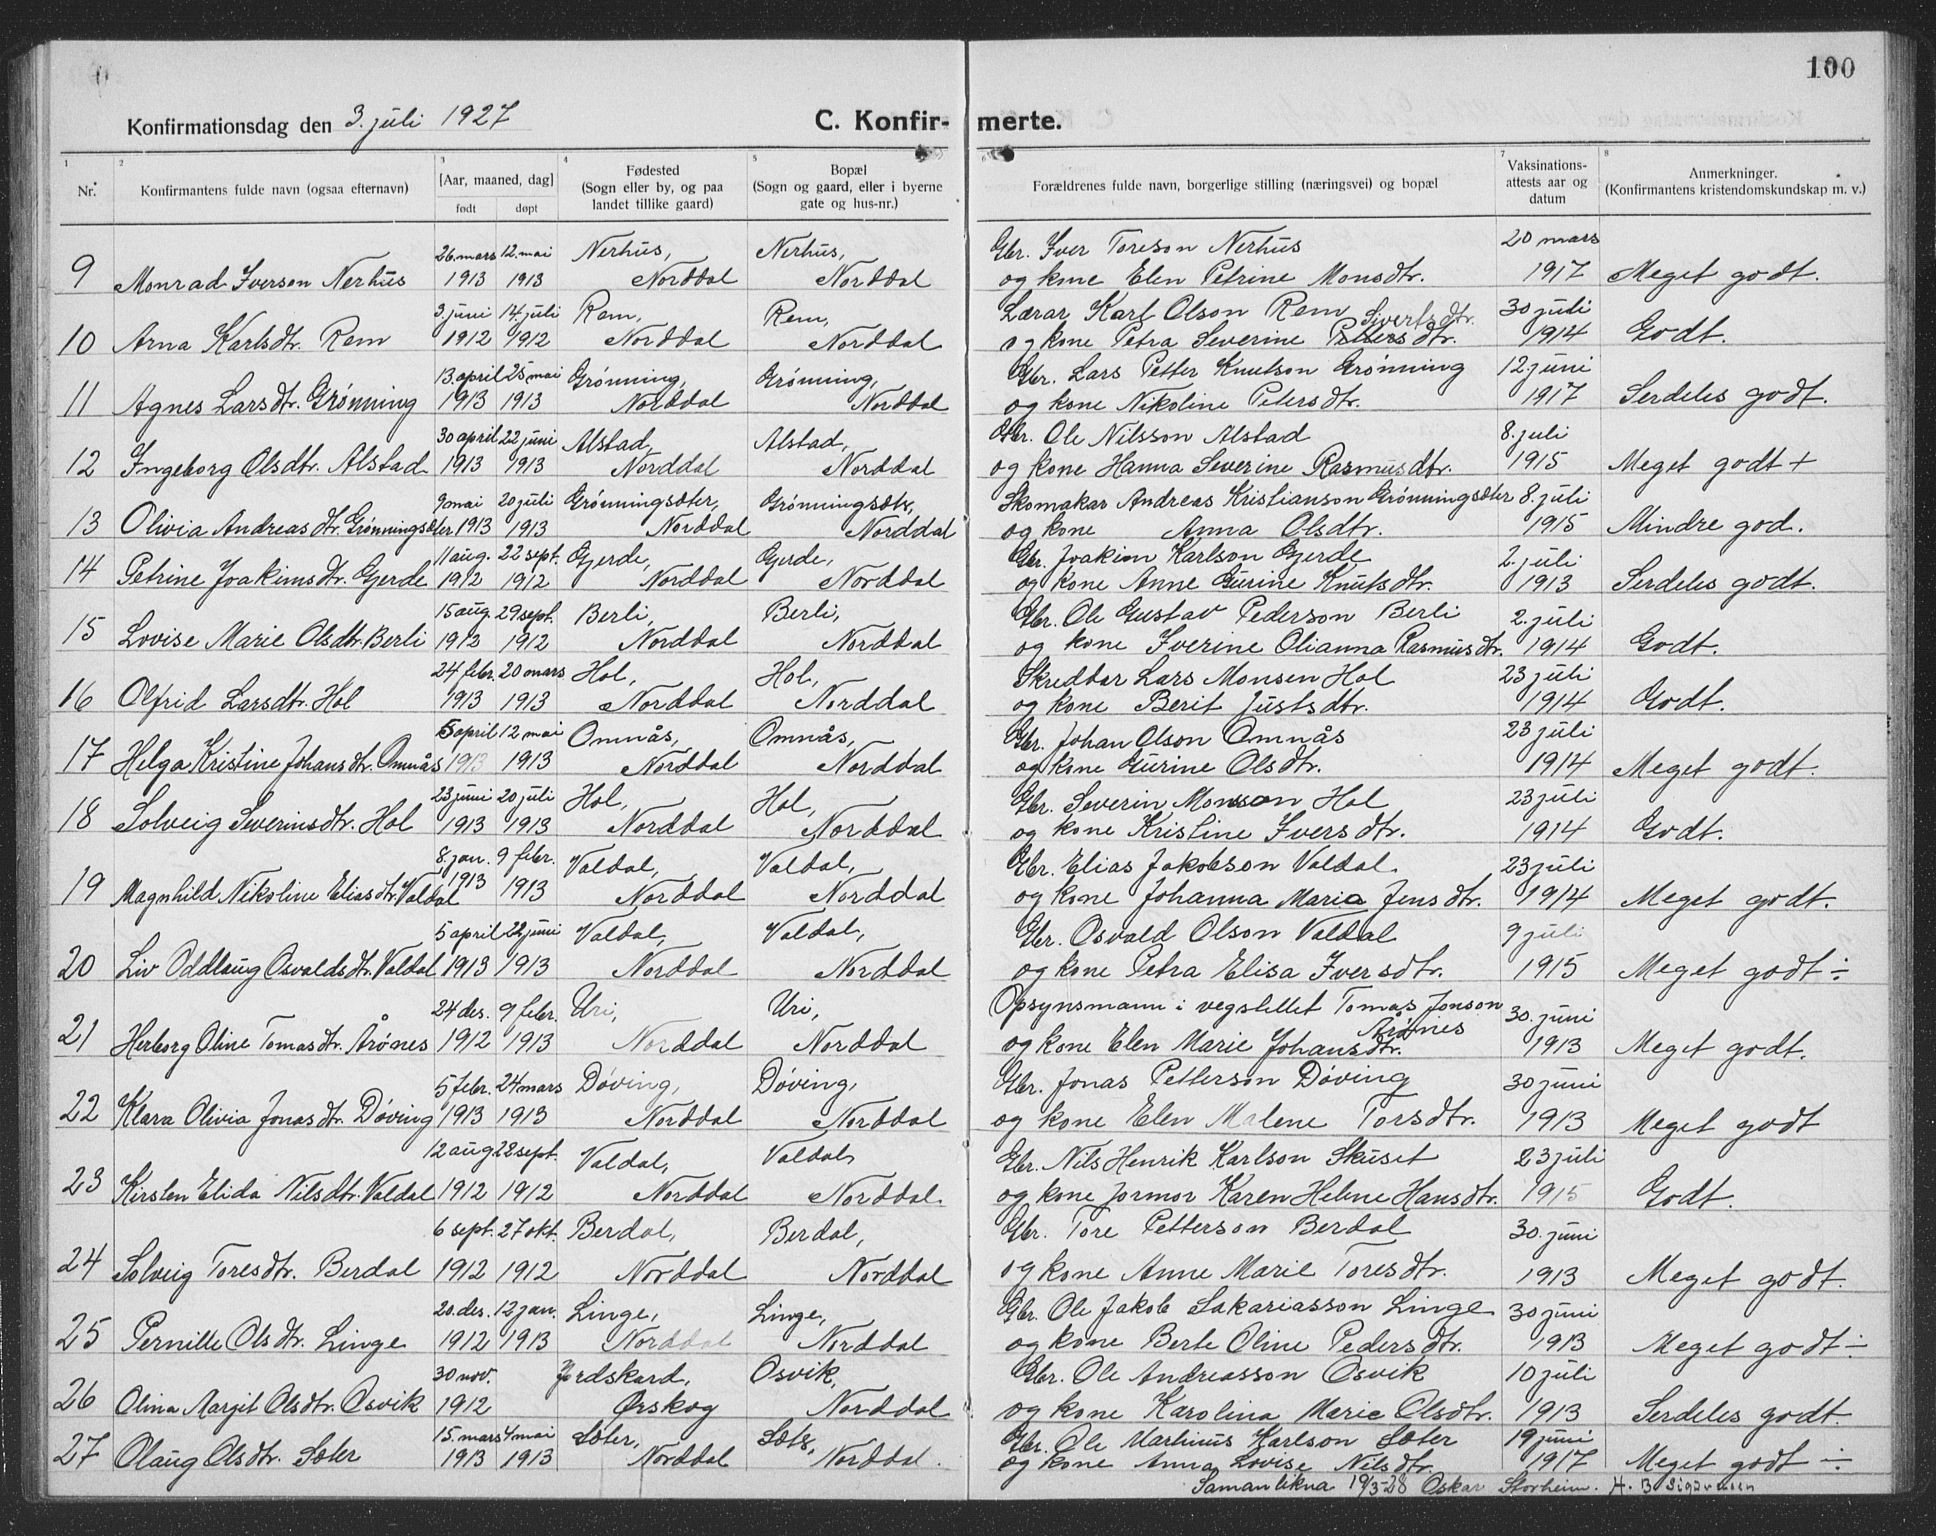 100
Konfirmationsdag den 3. juli 1927 C. Konfirmerte.
1 2 3 4 5 6 7 8
Nr. Konfirmantens fulde navn (ogsaa efternavn) [Aar, maaned, dag] født døpt Fødested (Sogn eller by, og paa landet tillike gaard) Bopæl (Sogn og gaard, eller i byerne gate og hus-nr.) Forældrenes fulde navn, borgerlige stilling (næringsvei) og bopæl Vaksinations-attests aar og datum Anmerkninger. (Konfirmantens kristendomskundskap m. v.)
26. mars 12. mai Nerhus, Nerhus, Gbr. Iver Toreson Nerhus 20 mars
9 Monrad Iverson Nerhus 1913 1913 Norddal Norddal og kone Elen Petrine Monsdtr. 1917 Meget godt.
3. juni 14. juli Rem, Rem, Lærar Karl Olson Rem Sivertsdtr. 30 juli
10 Arna Karlsdtr. Rem 1912 1912 Norddal Norddal og kone Petra Severine Petersdtr. 1914 Godt.
13. april 25 mai Grönning, Grönning, Gbr. Lars Petter Knutson Grönning 12 juni
11 Agnes Larsdtr. Grönning 1913 1913 Norddal Norddal og kone Nikoline Petersdtr. 1917 Serdeles godt.
30 april 22 juni Alstad, Alstad, Gbr. Ole Nilsson Alstad 8. juli
12 Ingeborg Olsdtr. Alstad 1913 1913 Norddal Norddal og kone Hanna Severine Rasmusdtr. 1915 Meget godt +
9 mai 20 juli Grönningsæter, Grönningsætr, Skomakar Andreas Kristianson Grönningsæter 8. juli
13 Olivia Andreasdtr. Grönningsæter 1913 1913 Norddal Norddal og kone Anna Olsdtr. 1915 Mindre god.
11 aug. 22 sept. Gjerde, Gjerde, Gbr. Joakim Karlson Gjerde 2. juli
14 Petrine Joakimsdtr. Gjerde 1912 1912 Norddal Norddal og kone Anne Gurine Knutsdtr. 1913 Serdeles godt.
15 aug. 29 sept. Berli, Berli, Gbr. Ole Gustav Pederson Berli 2. juli
15 Lovise Marie Olsdtr. Berli 1912 1912 Norddal Norddal og kone Iverine Olianna Rasmusdtr. 1914 Godt.
24 febr. 20 mars Hol, Hol, Skreddar Lars Monsen Hol 23 juli
16 Olfrid Larsdtr. Hol 1913 1913 Norddal Norddal og kone Berit Justsdtr. 1914 Godt.
5 april 12 mai Omnås, Omnås, Gbr. Johan Olson Omnås 23 juli
17 Helga Kristine Johansdtr. Omnås 1913 1913 Norddal Norddal og kone Gurine Olsdtr. 1914 Meget godt.
23 juni 20 juli Hol, Hol, Gbr. Severin Monsson Hol 23 juli
18 Solveig Severinsdtr. Hol 1913 1913 Norddal Norddal og kone Kristine Iversdtr. 1914 Godt.
8. jan. 9 febr. Valdal, Valdal, Gbr. Elias Jakobson Valdal. 23 juli
19 Magnhild Nikoline Eliasdtr. Valdal 1913 1913 Norddal Norddal og kone Johanna Maria Jensdtr. 1914 Meget godt.
5 april 22 juni Valdal, Valdal, Gbr. Osvald Olson Valdal 9 juli
20 Liv Oddlaug Osvaldsdtr. Valdal 1913 1913 Norddal Norddal og kone Petra Elisa Iversdtr. 1915 Meget godt ÷
24 des. 9 febr. Uri, Uri, Opsynsmann i vegstellet Tomas Jonson Årönes 30. juni
21 Herborg Oline Tomasdtr. Årönes 1912 1913 Norddal Norddal og kone Elen Marie Johansdtr. 1913 Meget godt.
5 febr. 24 mars Döving, Döving, Gbr. Jonas Petterson Döving 30 juni
22 Klara Olivia Jonasdtr. Döving 1913 1913 Norddal Norddal og kone Elen Malene Torsdtr. 1913 Meget godt
12 aug 22 sept. Valdal, Valdal, Gbr. Nils Henrik Karlson Skuset 23 juli
23 Kirsten Elida Nilsdtr. Valdal 1912 1912 Norddal Norddal. og kone Jormor Karen Helene Hansdtr. 1915 Godt.
6 sept. 27 okt. Berdal, Berdal, Gbr. Tore Petterson Berdal 30. juni
24 Solveig Toresdtr. Berdal 1912 1912 Norddal Norddal og kone Anne Marie Toresdtr. 1913 Meget godt.
20. des. 12 jan. Linge, Linge, Gbr. Ole Jakob Sakariasson Linge 30 juni
25 Pernille Olsdtr. Linge 1912 1913 Norddal Norddal og kone Berte Oline Pedersdtr. 1913 Meget godt ÷
30 nov. Osvik, Gbr. Ole Andreasson Osvik 10 juli
26 Olina Margit Olsdtr. Osvik 1912 Ørskog Norddal og kone Karolina Marie Olsdtr. 1913 Serdeles godt.
15. mars 4 mai Sæter, Sætr, Gbr. Ole Martinus Karlson Sæter 19 juni
27 Olaug Olsdtr. Sæter 1913 1913 Norddal Norddal. og kone Anna Lovise Nilsdtr. 1917 Meget godt ÷
Samanlikna 19/3-28 Oskar Storheim. H. B. Sigurdsen